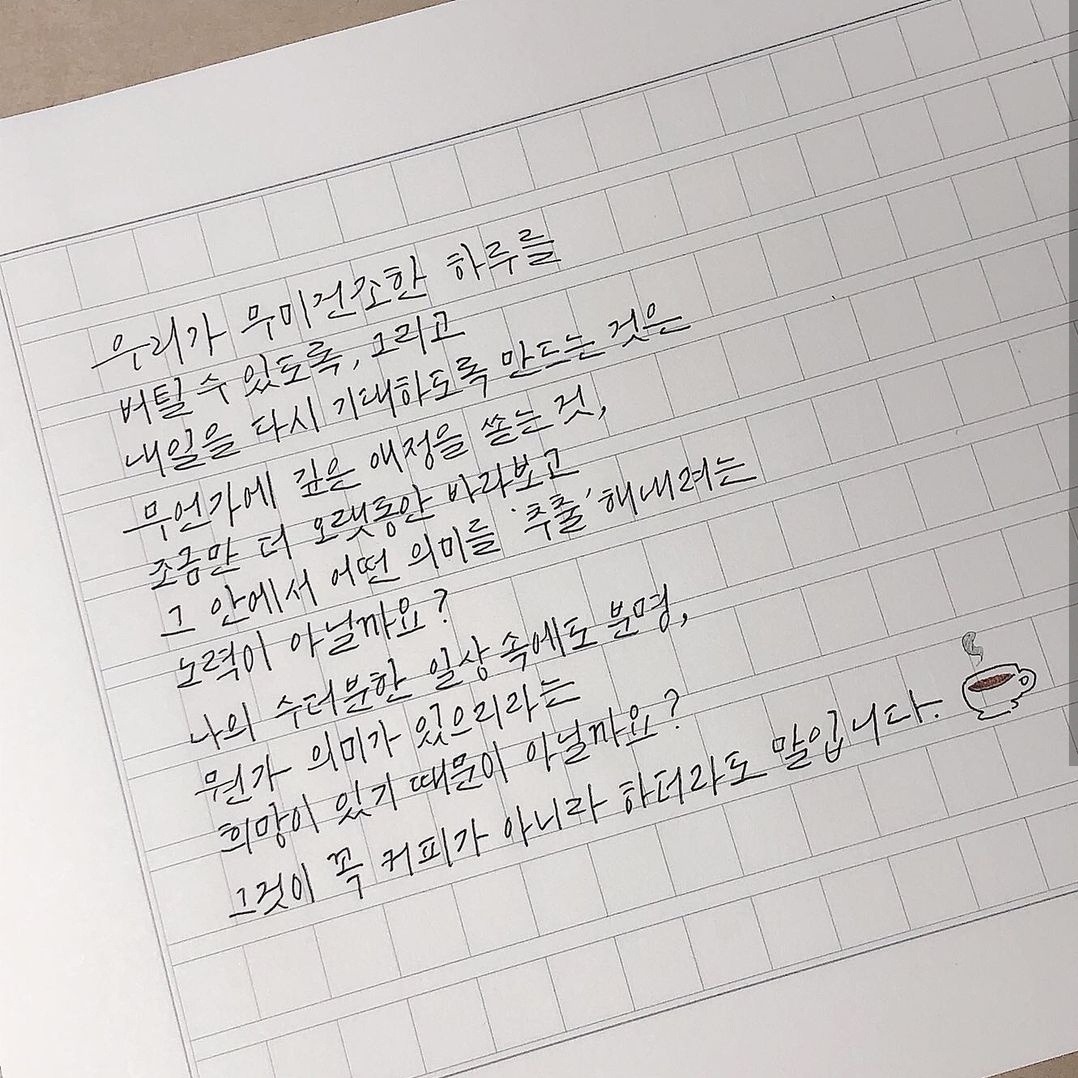 우리가 무미건조한 하루를
버틸 수 있도록, 그리고
내일을 다시 기대하도록 만드는 것은
무언가에 깊은 애정을 쏟는 것,
조금만 더 오랫동안 바라보고
그 안에서 어떤 의미를 '추출'해내려는
노력이 아닐까요?
나의 수더분한 일상 속에도 분명,
뭔가 의미가 있으리라는
희망이 있기 때문이 아닐까요?
그것이 꼭 커피가 아니라 하더라도 말입니다.